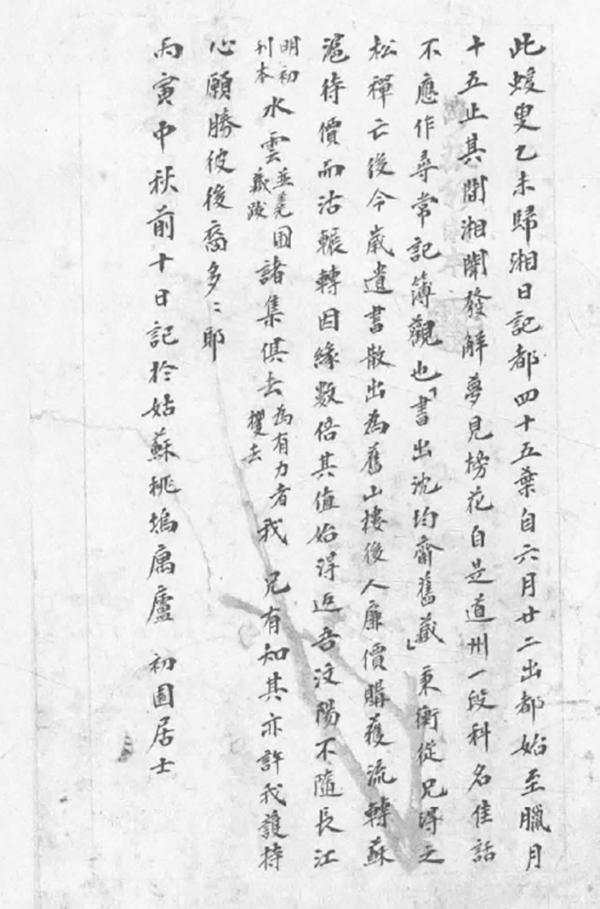 此蝯叟乙未歸湘日記都四十五葉自六月廿二出都始至臘月
十五止其間湘闈發解夢見榜花自是道州一段科名佳話
不應作尋常記簿觀也「書出沈均齋舊藏」秉衡從兄得之
松禪亡後今歲遺書散出為舊山樓後人廉價購獲流轉蘇
滬待價而沽輾轉因緣數倍其值始得返吾汶陽不隨長江
明初刊本水雲並堯翁跋困諸集俱去為有力者攫去我兄有知其亦許我護持
心願勝彼後裔多〻耶
丙寅中秋前十日記於姑蘇桃塢寓廬 初園居士